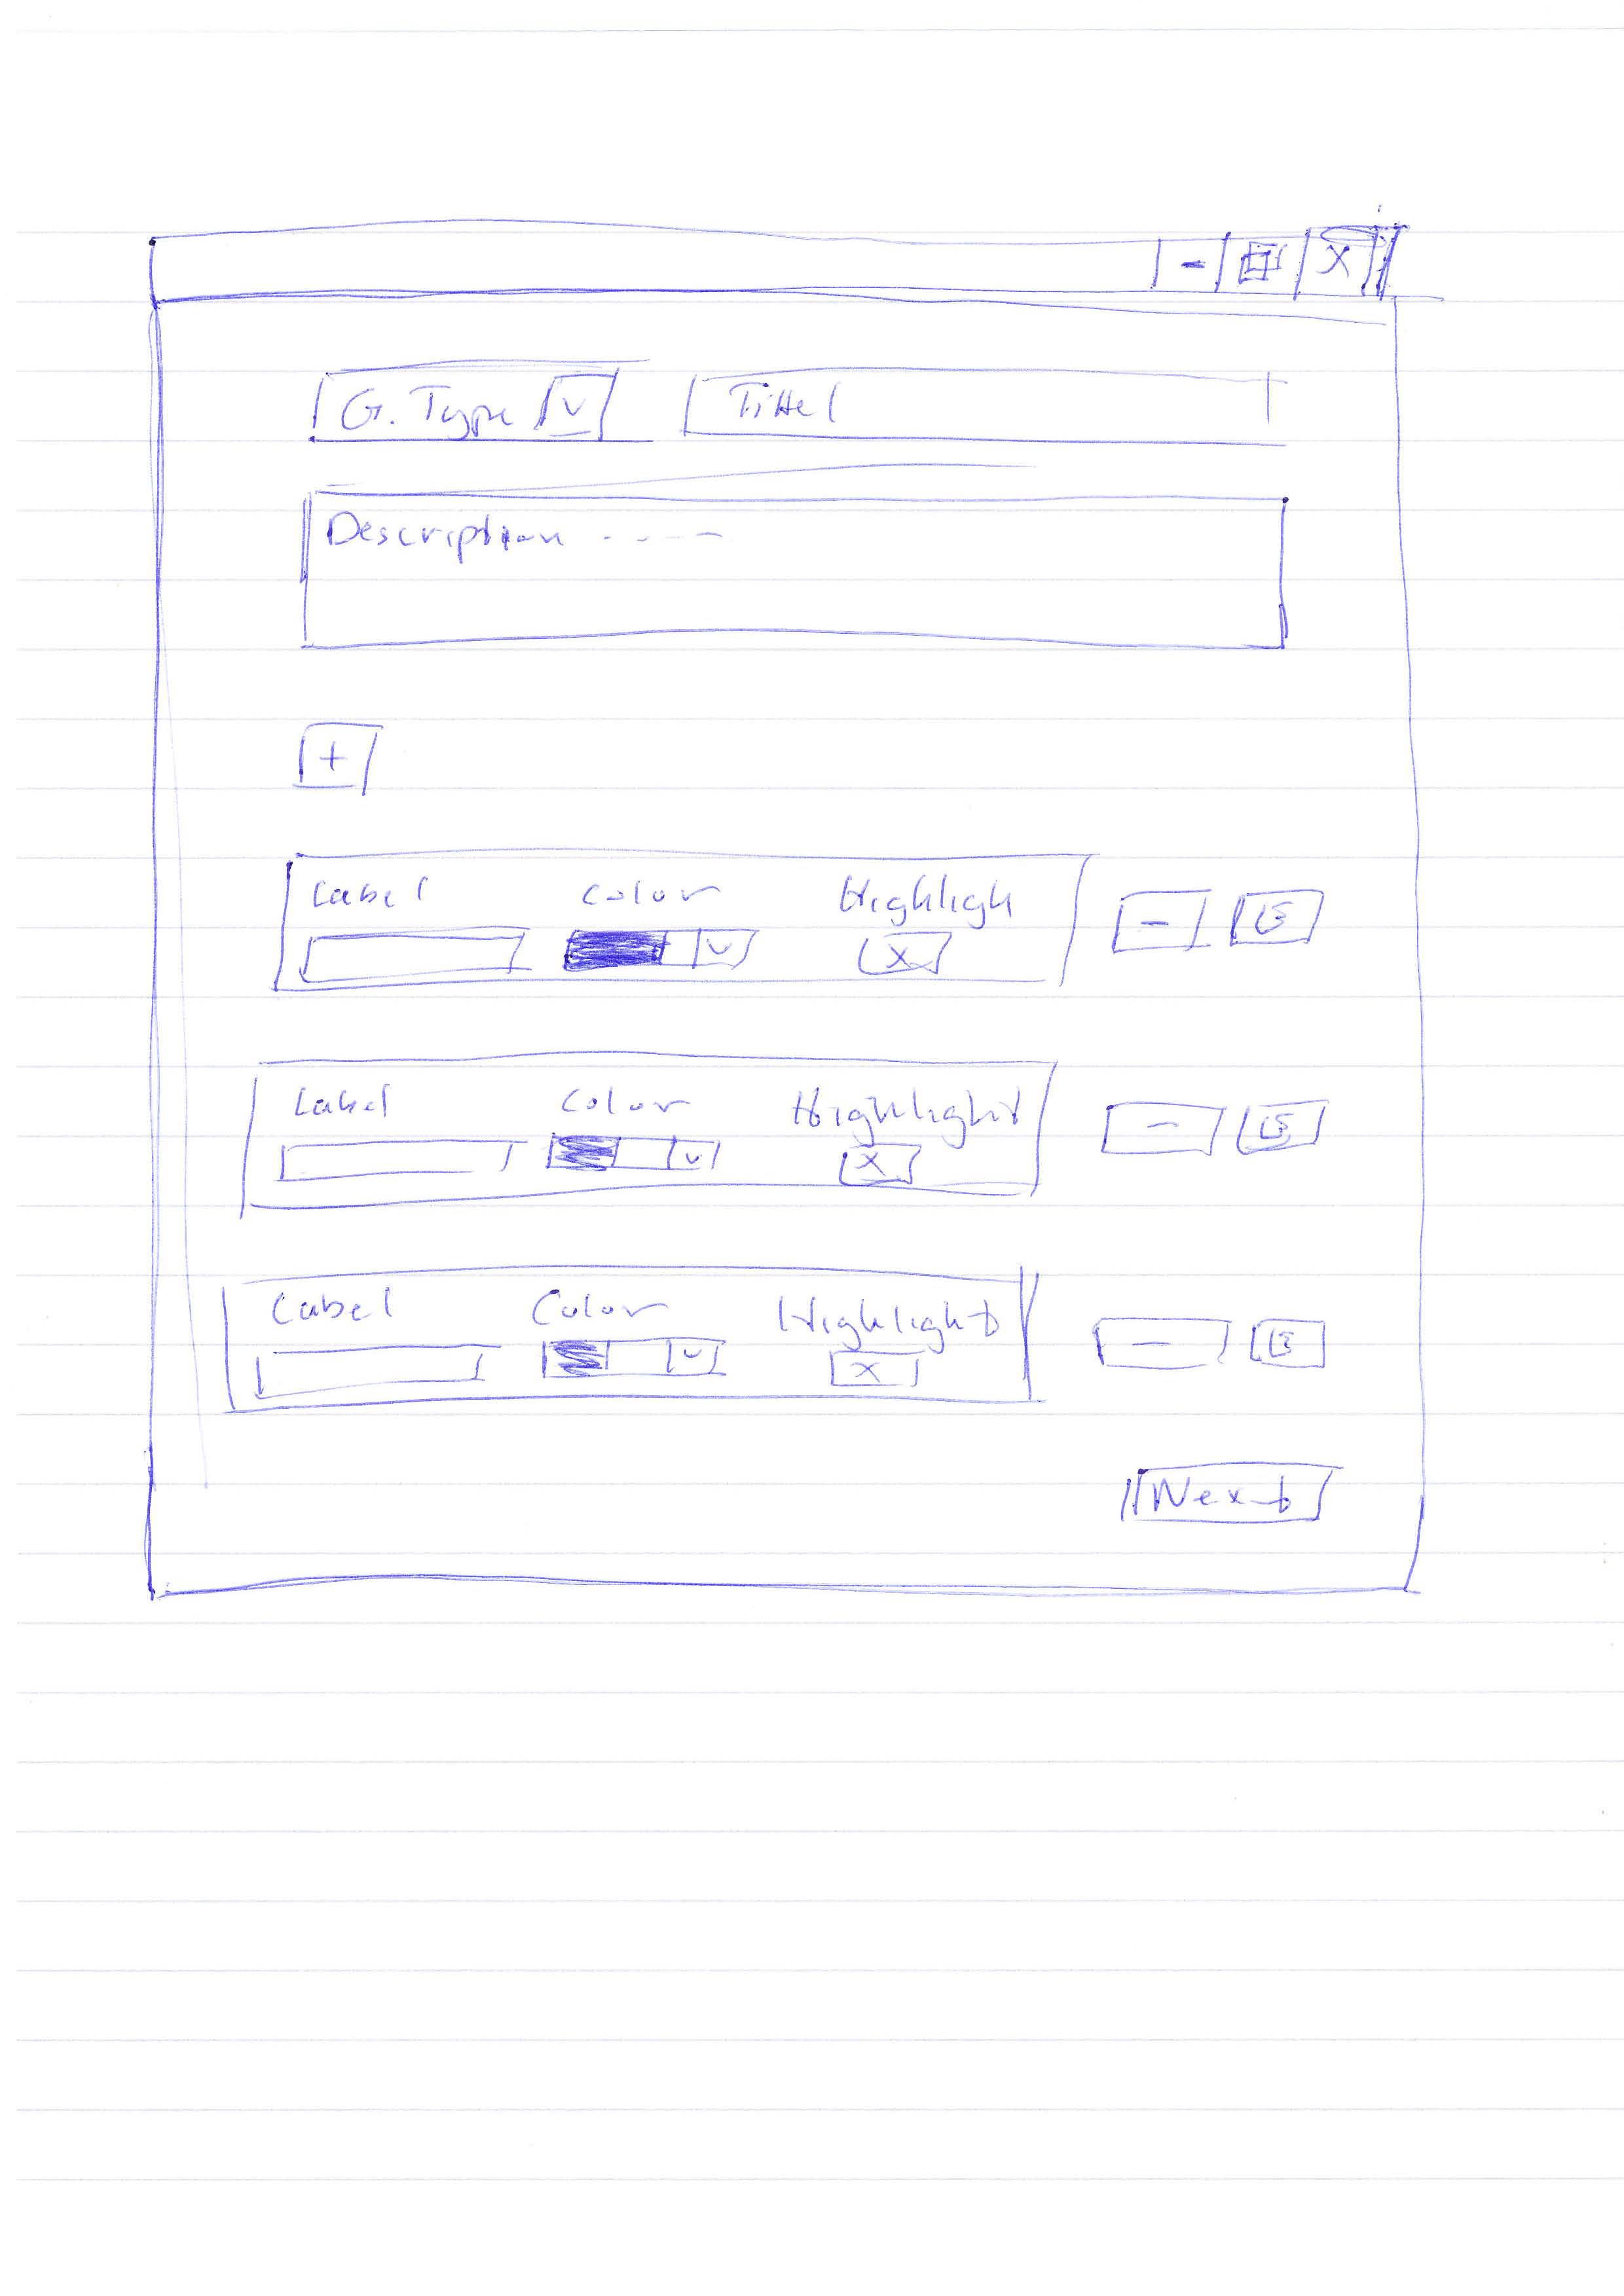 - X
G. Type v Tittel
Description ----
+
Label Color Highligh
v X -
Label Color Highlight
v X -
Label Color Highlight
v X -
Next